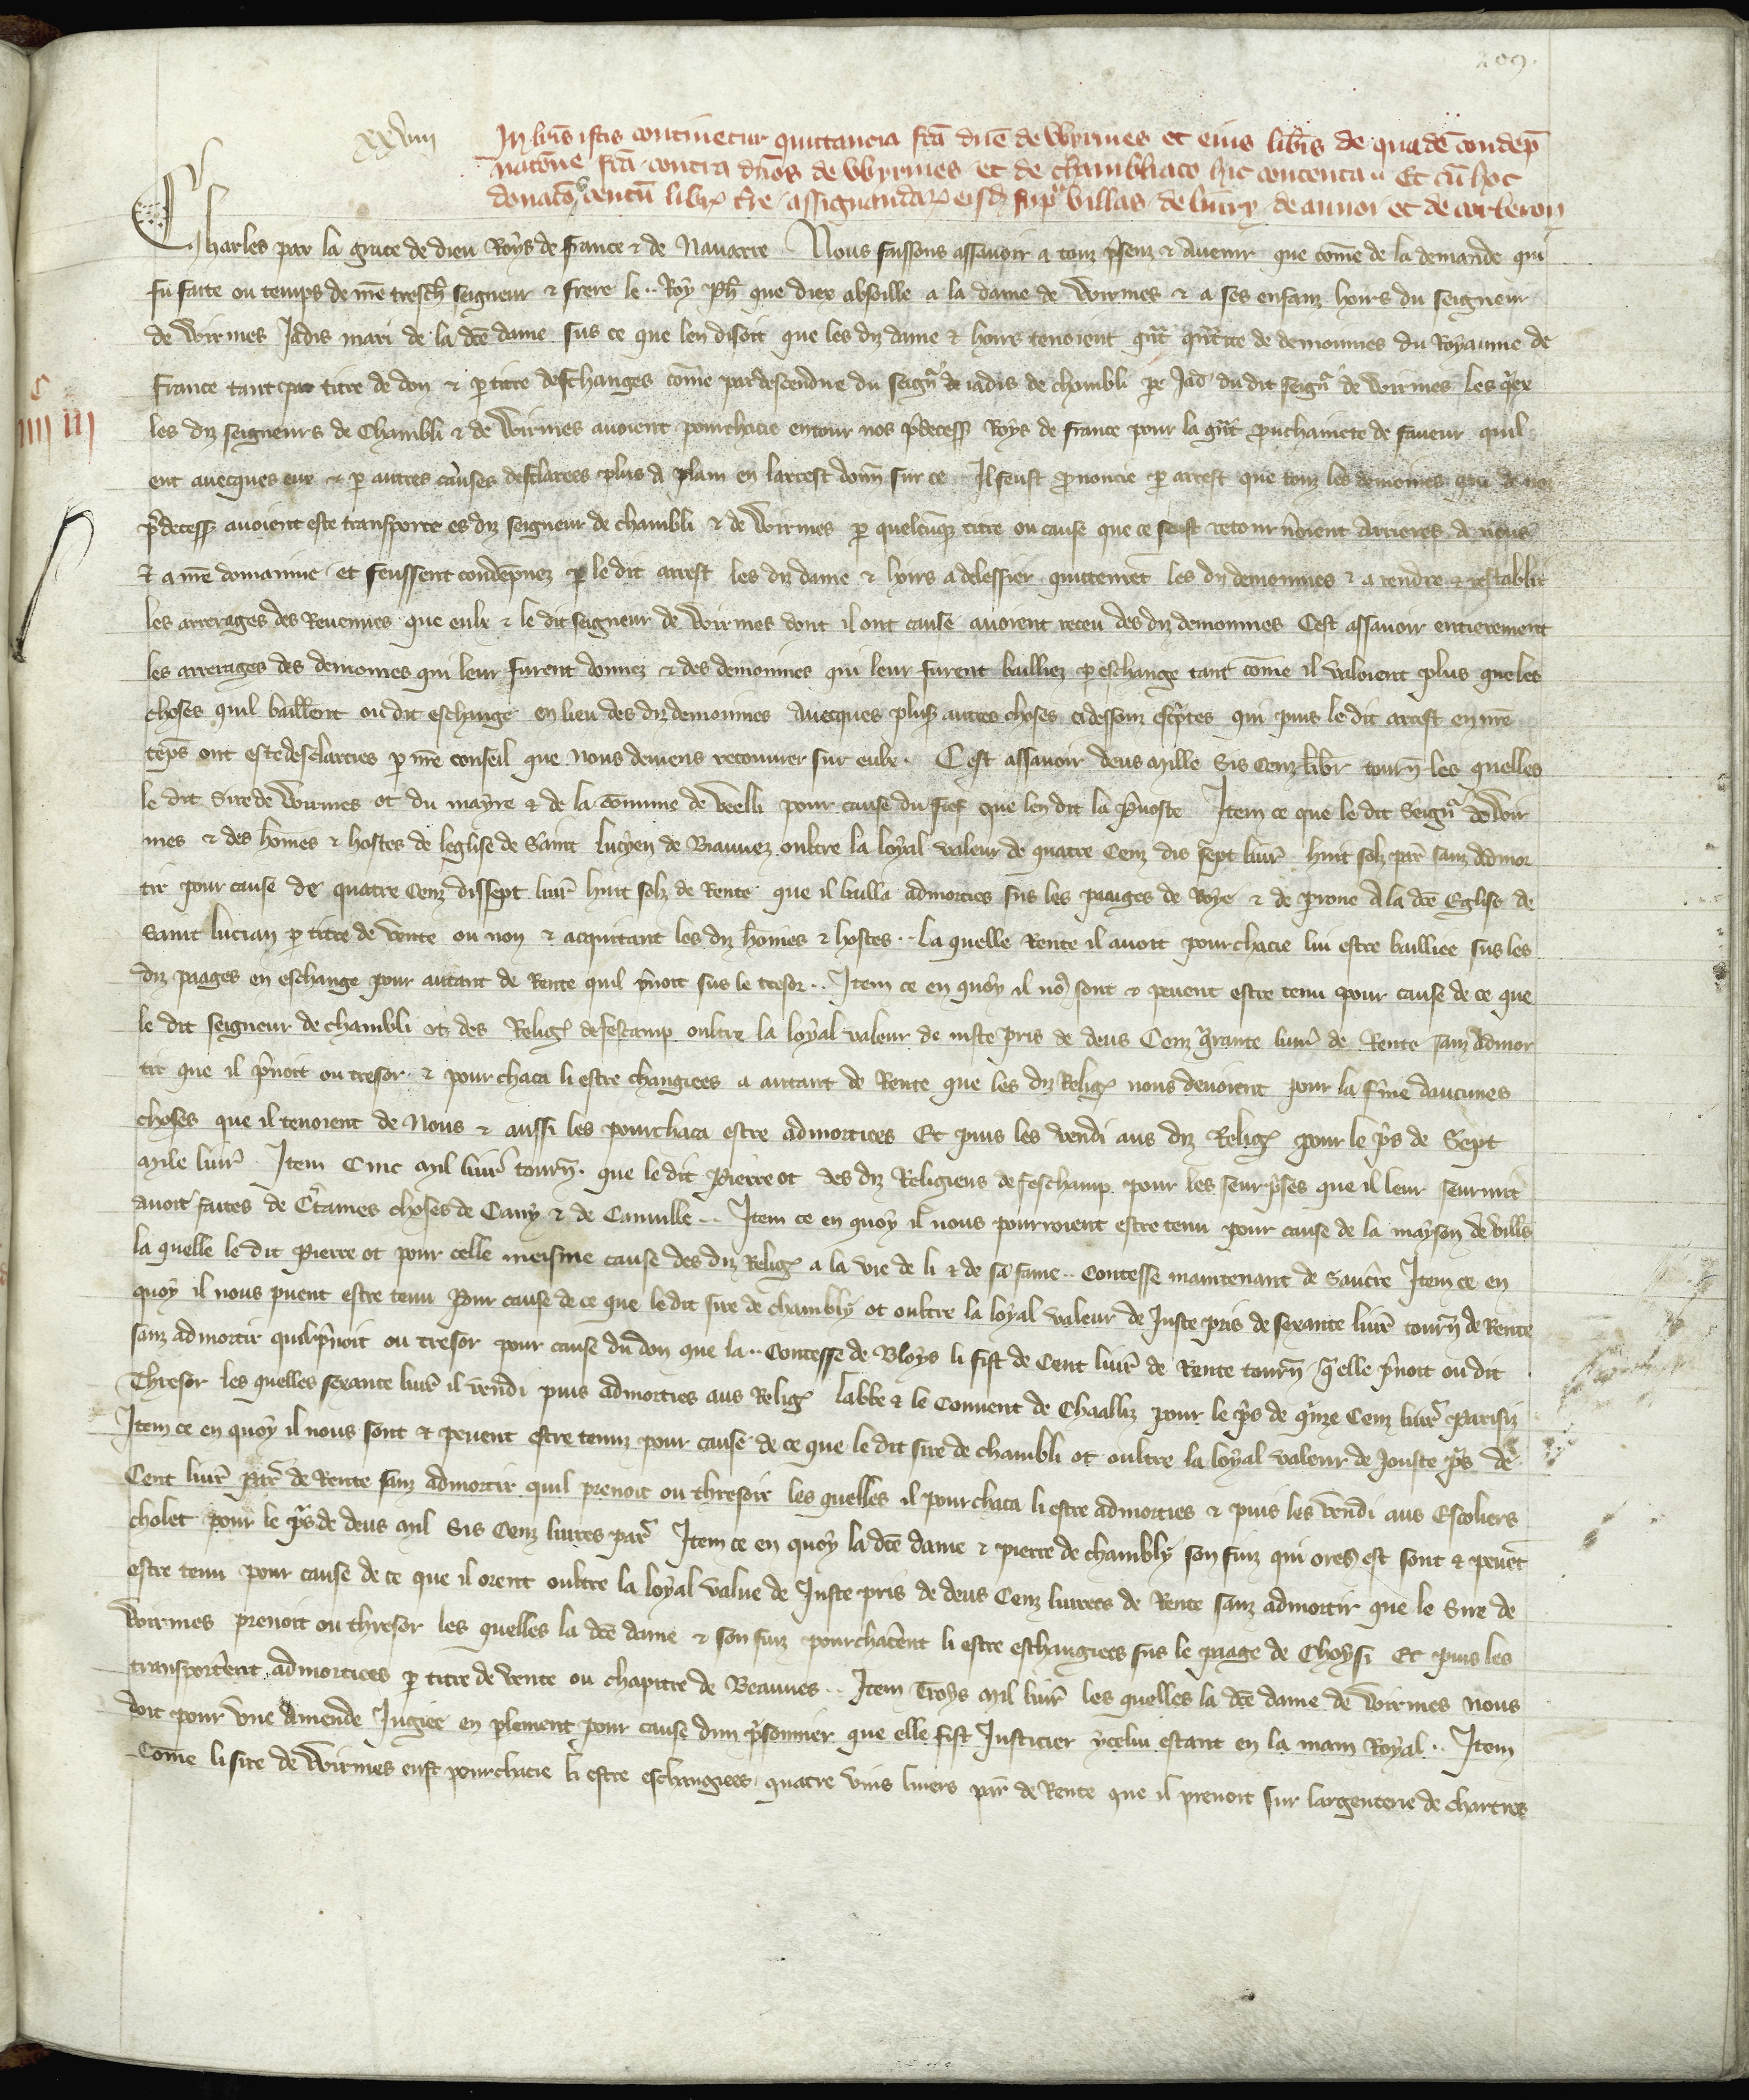 209.
xxviii
In lr̄is istis continetur quittancia fc̄a dn̄e de Wyrmes et eius libr̄is de quadē condēp
natōne fc̄a contra dn̄os de Wyrmes et de chambliaco hic contenta Et cū hoc
donatō centū libr̄ tr̄e assignandar̄ eisd̄ sup̄ villas de livry de aunoi et de corberon
Charles par la grace de dieu Roys de france & de Navarre Nous faisons assavoir a touz p̄senz & avenir que com̄e de la demande qui
fu faite ou temps de nr̄e tresch̄ seigneur & frere le Roy Ph̄ que diex absoille a la dame de Wirmes & a ses enfanz hoirs du seigneur
de Wirmes Jadis mari de la dc̄e dame sus ce que len disoit que les diz dame & hoirs tenoient gn̄t qn̄tite de demoinnes du Royaume de
france tant par titre de don & p̄ titre deschanges com̄e par descendue du seign̄ de iadis de chambli pe Jad̄ du dit seign̄ de Wirmes les q̄ex
les diz seigneurs de Chambli & de Wirmes avoient pourchacie entour nos p̄decess̄ Roys de france pour la gn̄t prouchainete de faveur quil
ent avecques eux & p̄ autres causes desclarcies plus a plain en larrest donn̄ sur ce Il feust prononcie p̄ arrest que touz les demoines qui de noz
p̄decess̄ avoient este transporte es diz seigneur de chambli & de Wirmes p̄ quelcūq̄ titre ou cause que ce feust retournoient arrieres a nous
& a nr̄e domainne et feussent condēpnez p̄ le dit arrest les diz dame & hoirs a delessier quittemēt les diz demoinnes & a rendre & restablir
les arrerages des Revenues que eulx & le dit seigneur de Wirmes dont il ont cause avoient receu des diz demoinnes Cest assavoir entierement
les arrerages des demoines qui leur furent donnez & des demoinnes qui leur furent bailliez p̄ eschange tant com̄e il valoient plus que les
choses quil baill̄ent ou dit eschange en lieu des diz demoinnes avecques plus̄ autres choses ci dessouz esc̄ptes qui puis le dit arrest en nr̄e
tēps ont este desclarcies p̄ nr̄e conseil que nous deviens recouvrer sur eulx. Cest assavoir deus mille Sis Cenz libr̄ tourn̄ les quelles
le dit Sire de Wirmes ot du mayre & de la cōmune de veelli pour cause du fief que len dit la p̄voste Item ce que le dit Seign̄ de Wir
mes & des hom̄es & hostes de leglise de Saint Lucyen de Biauvez oultre la loyal valeur de quatre Cenz dis sept livr̄ huit solz par̄ sanz admor
tir pour cause de quatre Cenz dissept livr̄ huit solz de Rente que il bailla admorties sus les paages de Roye & de perone A la dc̄e Eglise de
Saint Lucian p̄ titre de vente ou non & acquittant les diz hom̄es & hostes La quelle Rente il avoit pourchacie lui estre bailliee sus les
diz paages en eschange pour autant de Rente quil p̄noit sus le tresor Item ce en quoy il no᷒ sont & pevent estre tenu pour cause de ce que
le dit seigneur de chambli ot des Reliḡ de fescamp oultre la loyal valeur de iuste pris de deus Cenz q̄rante livr̄ de Rente sanz admor
tir que il p̄noit ou tresor & pourchaca li estre changiees a autant de Rente que les diz Reliḡ nous devoient pour la f̄me daucunes
choses que il tenoient de Nous & aussi les pourchaca estre admorties Et puis les vendi aus diz Reliḡ pour le p̄s de Sept
mile livr̄ Item Cinc mil livr̄ tourn̄. que le dit Pierre ot des diz Religieus de feschamp pour les seurp̄ses que il leur seurmit
avoir faites de C̄taines choses de Cany & de Canville Item ce en quoy il nous pourroient estre tenu pour cause de la mayson de vills
la quelle le dit Pierre ot pour celle meisme cause des diz Reliḡ a la vie de li & de sa fame Contesse maintenant de Sanc̄re Item ce en
quoy il nous puent estre tenu Pour cause de ce que le dit sire de chambly ot oultre la loyal valeur de Juste pris de sexante livr̄ tourn̄ de Rente
sanz admortir quil p̄noit ou tresor pour cause du don que la Contesse de Bloys li fist de Cent livr̄ de Rente tourn̄ q̄ elle p̄noit ou dit
Thresor les quelles sexante livr̄ il vendi puis admorties aus Reliḡ labbe & le Couvent de Chaalliz pour le p̄s de q̄nze Cenz livr̄ Parisiz
Item ce en quoy il nous sont & pevent estre tenuz pour cause de ce que le dit sire de chambli ot oultre la loyal valeur de Jouste p̄s de
Cent livr̄ par̄ de Rente sanz admortir quil prenoit ou thresoir les quelles il pourchaca li estre admorties & puis les vendi aus Escoliers
cholet pour le p̄s de deus mil Sis Cenz livres par̄ Item ce en quoy la dc̄e dame & pierre de chambly son fiuz qui ores est sont & pevēt
estre tenu pour cause de ce que il orent oultre la loyal value de Juste pris de deus Cenz livrees de Rente sanz admortir que le Sire de
Wirmes prenoit ou thresor les quelles la dc̄e dame & son fiuz pourchac̄ent li estre eschangiees sus le paage de Choysi Et puis les
transport̄ent admorties p̄ titre de vente ou chapitre de Beauves Item Troys mil livr̄ les quelles la dc̄e dame de Wirmes nous
doit pour une Amende Jugiee en p̄lement pour cause dun p̄sonnier que elle fist Justicier ycelui estant en la main Royal Item
Com̄e li sire de Wirmes eust pourchacie li estre eschangiees quatre vins livres par̄ de Rente que il prenoit sur largenterie de chartres